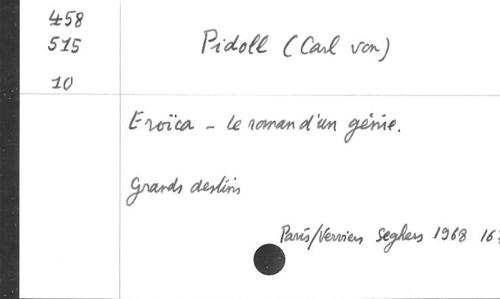 458
515
10
Pidoll (Carl von)
Eroïca - le roman d'un génie.
Grands destins
Paris/Verviers Seghers 1968